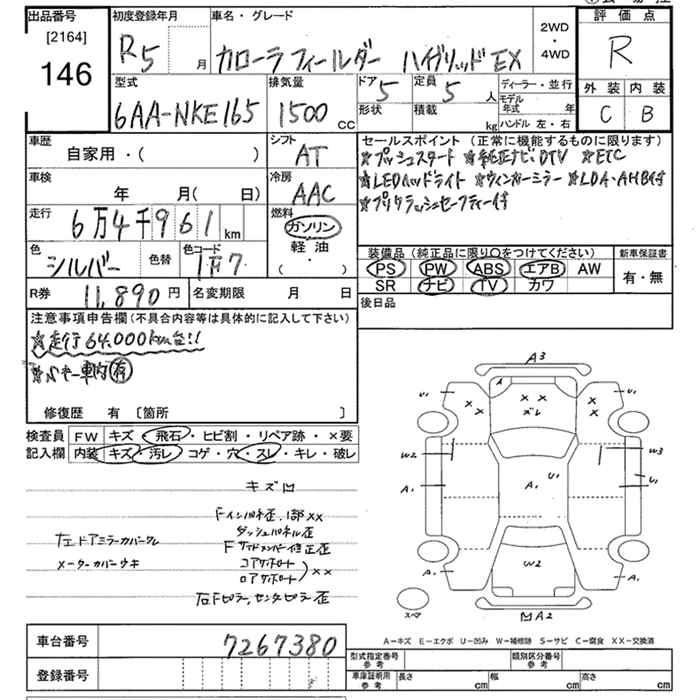 出品番号
[2164]
146
初度登録年月
R5 月
車名・グレード
カローラフィールダー ハイブリッド EX
2WD
・
4WD
評価点
R
外装 内装
C B
型式
6AA-NKE165
排気量
1500 cc
ドア
5
定員
5 人
形状
積載
kg
ディーラー・並行
モデル年式 年
ハンドル 左・右
車歴
自家用・( )
シフト
AT
車検
年 月( 日)
冷房
AAC
走行
6万4千961 km
燃料
ガソリン
軽油
・( ・ )
色
シルバー
色替
色コード
1F7
R券
11,890 円
名変期限 月 日
セールスポイント (正常に機能するものに限ります)
☆プッシュスタート ☆純正ナビ.DTV ☆ETC
☆LEDヘッドライト ☆ウィンカーミラー ☆LDA・AHB付
☆プリクラッシュセーフティー付
装備品 (純正品に限り○をつけてください)
PS PW ABS エアB AW
SR ナビ TV カワ
新車保証書
有・無
後日品
注意事項申告欄 (不具合内容等は具体的に記入して下さい)
☆走行64,000km台!!
車内 有
修復歴 有 〔箇所 〕
検査員記入欄
FW キズ・飛石・ヒビ割・リペア跡・×要
内装 キズ・汚レ・コゲ・穴・スレ・キレ・破レ
キズ凹
Fインパネ歪、1部××
ダッシュパネル歪
Fサイドメンバー修正歪
コアサポート
ロアサポート ××
右Fピラー、センタピラー歪
左ドアミラーカバークレ
メーターカバーキズ
A3
A
U1
×
×
× ×
ズレ
×
U1
W2
W3
A1
A1
U1
U1
W2
A1
A1
スペア
凹A2
A-キズ E-エクボ U-凹み W-補修跡 S-サビ C-腐食 XX-交換済
車台番号
7267380
登録番号
型式指定番号
参考
類別区分番号
参考
車庫証明用
参考
長さ cm
幅 cm
高さ cm